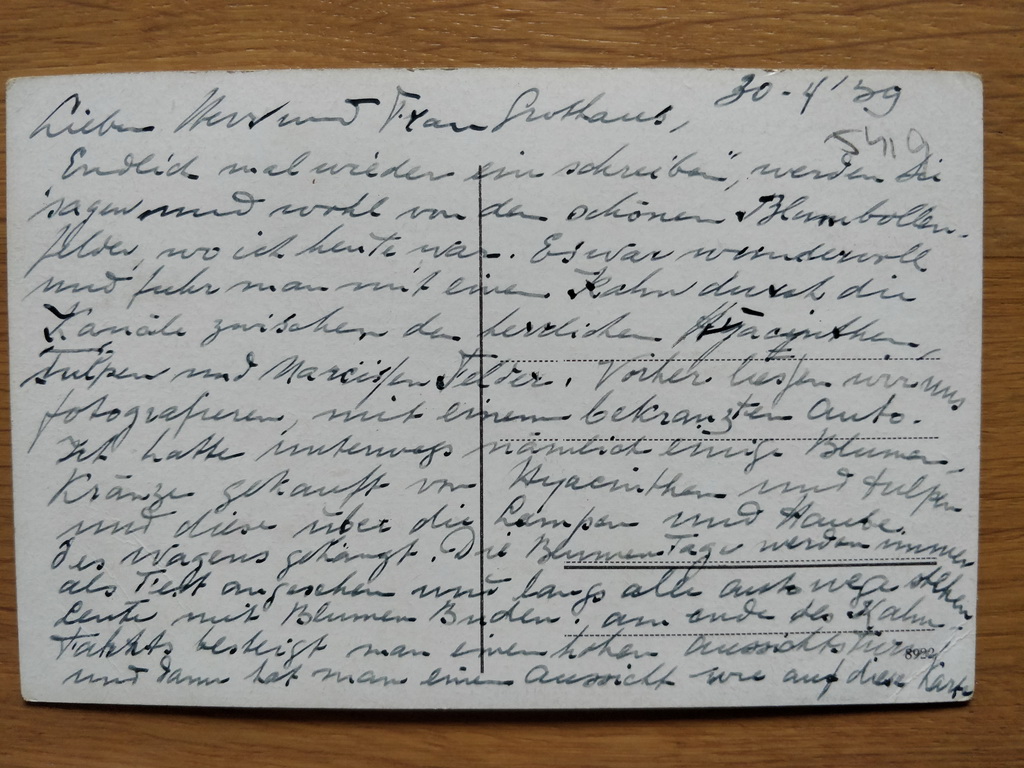 30-4'39
5419
Lieben Herr und Frau Grothaus,
Endlich mal wieder ein schreiben", werden Sie
sagen und wohl von den schönen Blumbollen-
felder, wo ich heute war. Es war wundervoll
und fuhr man mit einen Kahn durch die
Kanäle zwischen den herrlichen Hyacinthen,
Tulpen und Narcissen Felder. Vorher liessen wir uns
fotografieren, mit einem bekranzten Auto.
Ich hatte unterwegs nämlich einige Blumen,
Kränze gekauft von Hyacinthen und Tulpen
und diese über die Lampen und Haube
des Wagens gehängt. Die Blumen Tage werden immer
als Fest angesehen und langs alle auto wege stehen
Leute mit Blumen Buden. am ende des Kahn
Fahrts besteigt man einen hohen Aussichtsturm
8992
und dann hat man einen Aussicht wie auf diese Karte